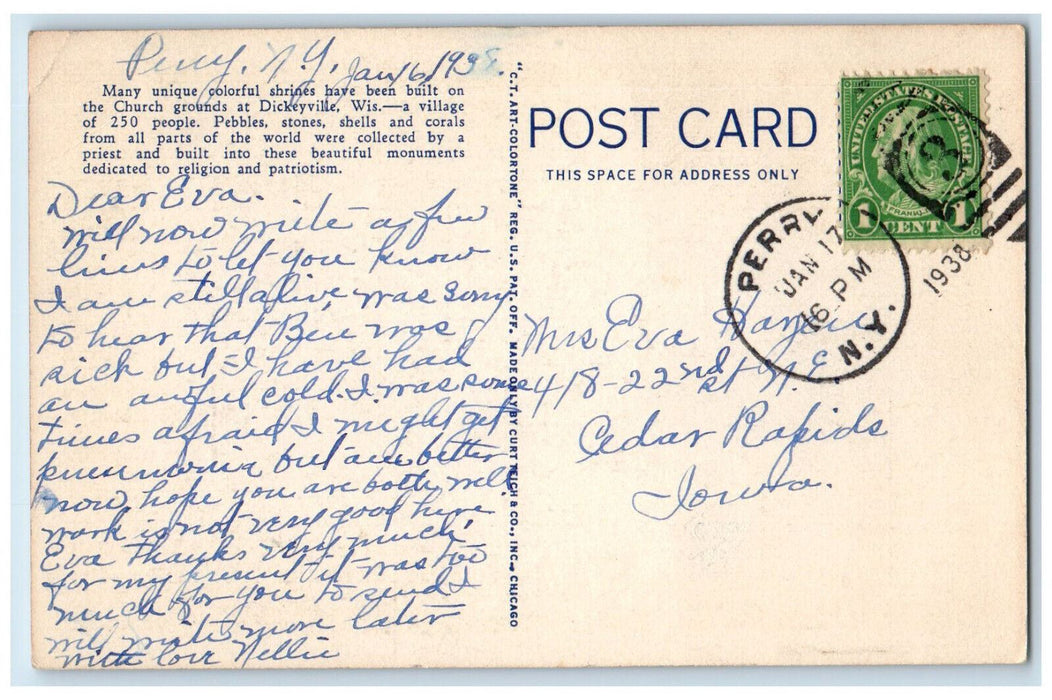 Perry, N.Y. Jan 16, 1938.
Many unique colorful shrines have been built on
the Church grounds at Dickeyville, Wis.—a village
of 250 people. Pebbles, stones, shells and corals
from all parts of the world were collected by a
priest and built into these beautiful monuments
dedicated to religion and patriotism.
Dear Eva.
will now write a few
lines to let you know
I am still alive was sorry
to hear that Bill was
sick but I have had
an awful cold. I was some
times afraid I might get
pneumonia but am better
now hope you are both well
work is not very good here
Eva thanks very much
for my present it was too
much for you to send I
will write more later
with love Nellie
"C.T. ART-COLORTONE" REG. U.S. PAT. OFF. MADE ONLY BY CURT TEICH & CO., INC., CHICAGO
POST CARD
THIS SPACE FOR ADDRESS ONLY
UNITED STATES POSTAGE
FRANKLIN
1 CENT 1
3
PERRY
JAN 17
16 PM
N.Y.
1938
Mrs Eva
418-22nd st N.E
Cedar Rapids
Iowa.